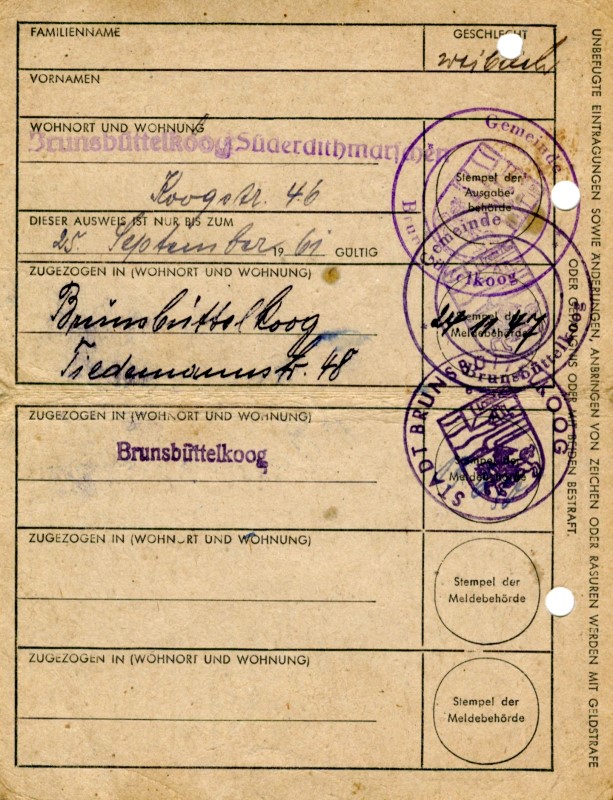 FAMILIENNAME
GESCHLECHT
weiblich
VORNAMEN
WOHNORT UND WOHNUNG
Brunsbüttelkoog/Süderdithmarschen
Koogstr. 46
Stempel der
Ausgabe-
behörde
Gemeinde
DIESER AUSWEIS IST NUR BIS ZUM
25. September 1961 GÜLTIG
ZUGEZOGEN IN (WOHNORT UND WOHNUNG)
Brunsbüttelkoog
Tiedemannstr. 48
Stempel der
Meldebehörde
Gemeinde
Brunsbüttelkoog
ZUGEZOGEN IN (WOHNORT UND WOHNUNG)
Brunsbüttelkoog
Stempel der
Meldebehörde
STADT BRUNSBÜTTELKOOG
ZUGEZOGEN IN (WOHNORT UND WOHNUNG)
Stempel der
Meldebehörde
ZUGEZOGEN IN (WOHNORT UND WOHNUNG)
Stempel der
Meldebehörde
UNBEFUGTE EINTRAGUNGEN SOWIE ÄNDERUNGEN, ANBRINGEN VON ZEICHEN ODER RASUREN WERDEN MIT GELDSTRAFE
ODER GEFÄNGNIS ODER MIT BEIDEN BESTRAFT.